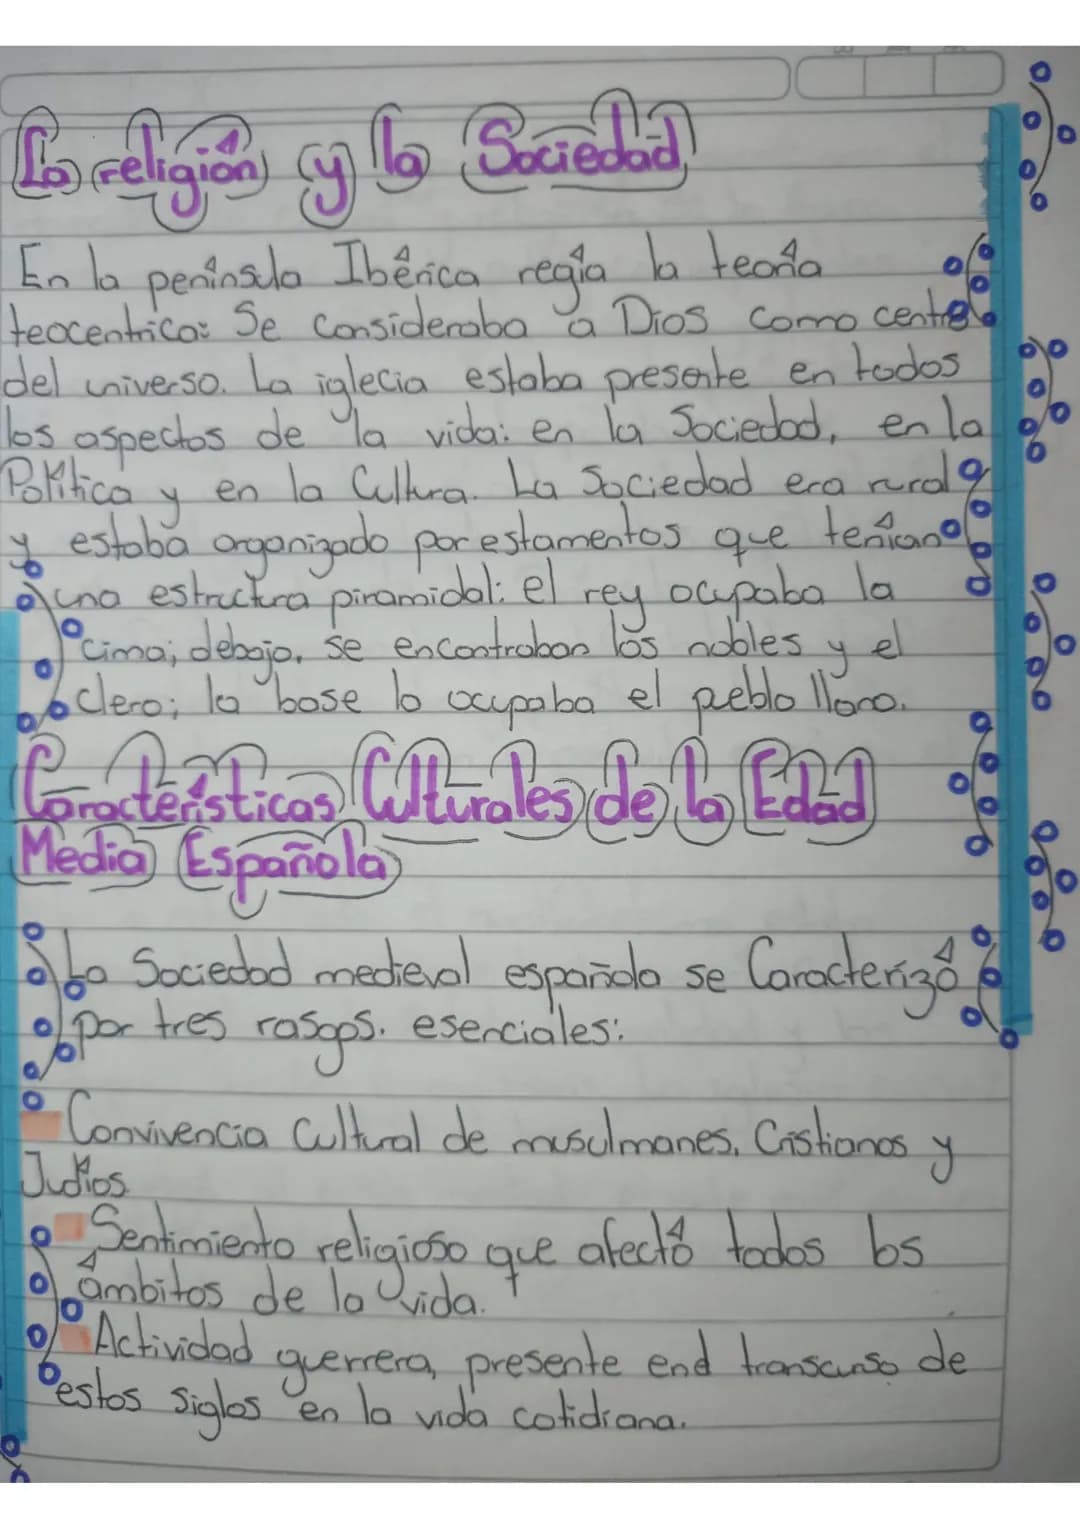 La religión y la Sociedad
En la península Ibérica regía la teoría
teocentrica: Se Consideraba a Dios como centro
del universo. La iglecia estaba presente en todos
los aspectos de la vida: en la Sociedad, en la
Política y en la Cultura. La Sociedad era rural
y estaba organizado por estamentos que tenían
una estructura piramidal: el rey ocupaba la
cima; debajo, se encontraban los nobles y el
clero; la base lo ocupaba el pueblo llano.
Características Culturales de la Edad
Media Española
La Sociedad medieval española se Caracterizó
por tres rasgos. esenciales:
Convivencia Cultural de musulmanes, Cristianos y
Judíos.
Sentimiento religioso que afectó todos los
ámbitos de la vida.
Actividad guerrera, presente end transcurso de
estos siglos en la vida cotidiana.